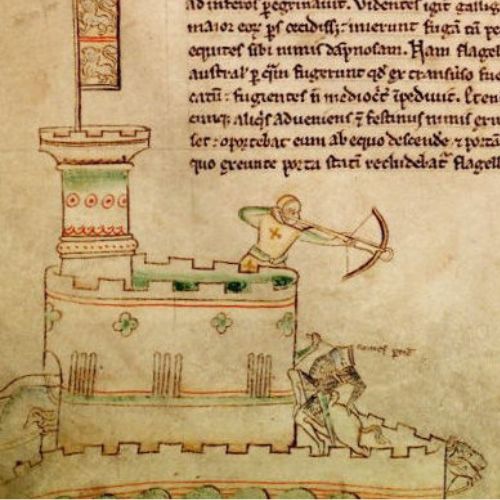 ad inferos peregrinauit. Videntes igit̛ gallig
maior eoꝝ ps̄ cecidiss; inierunt fugā tā pe
equites sibi nimis dāpnosam. Nam flagell
austral̛ p q̄m fugerunt qd̛ ex transuso fue
catū: fugientes n̄ mediocr̛ īpediuit. Eten
cunq; aliq̛s adueniens ⁊ festinus nimis egr
set: oportebat eum ab equo descende ⁊ portā
quo exeunte porta statī recludebat̛ flagell